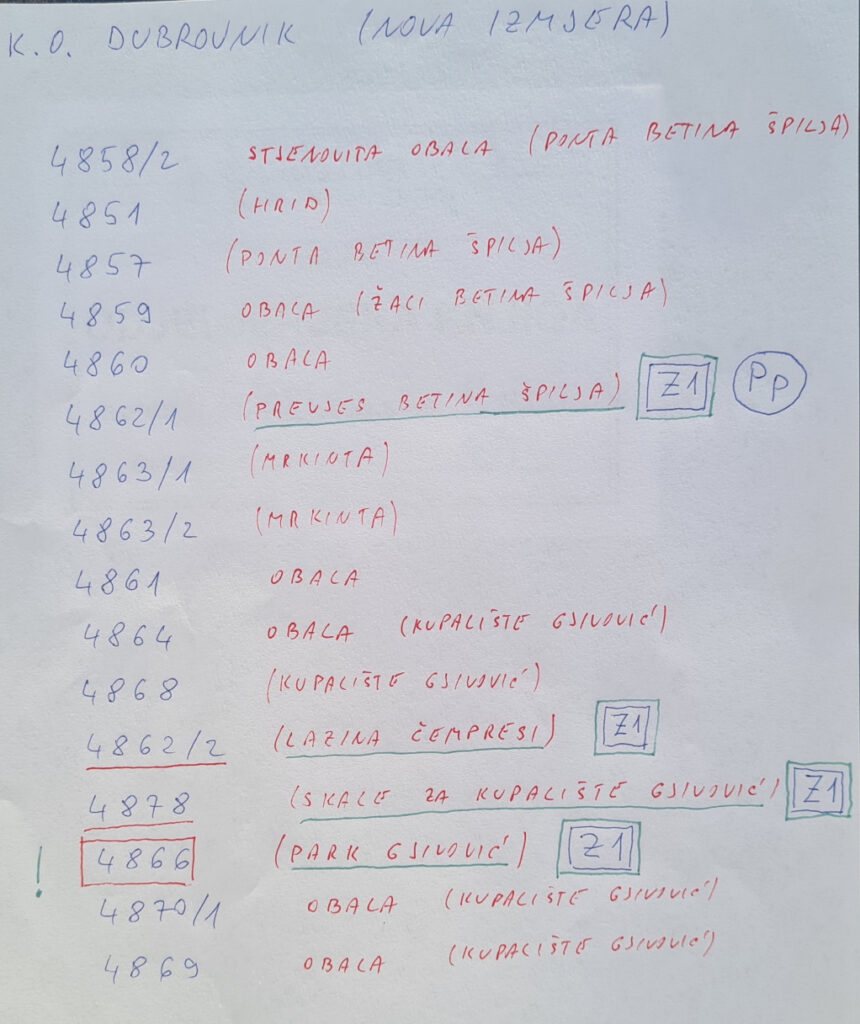 K.O. DUBROVNIK (NOVA IZMJERA)
4858/2 STJENOVITA OBALA (PONTA BETINA ŠPILJA)
4851 (HRID)
4857 (PONTA BETINA ŠPILJA)
4859 OBALA (ŽALI BETINA ŠPILJA)
4860 OBALA
4862/1 (PREVJES BETINA ŠPILJA) Z1 Pp
4863/1 (MRKINTA)
4863/2 (MRKINTA)
4861 OBALA
4864 OBALA (KUPALIŠTE GJIVOVIĆ)
4868 (KUPALIŠTE GJIVOVIĆ)
4862/2 (LAZINA ČEMPRESI) Z1
4878 (SKALE ZA KUPALIŠTE GJIVOVIĆ) Z1
! 4866 (PARK GJIVOVIĆ) Z1
4870/1 OBALA (KUPALIŠTE GJIVOVIĆ)
4869 OBALA (KUPALIŠTE GJIVOVIĆ)